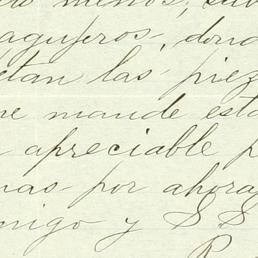 menos, sub
agujeros, dond
etan las piez
me mande esta
apreciable p
mas por ahora
migo y S S